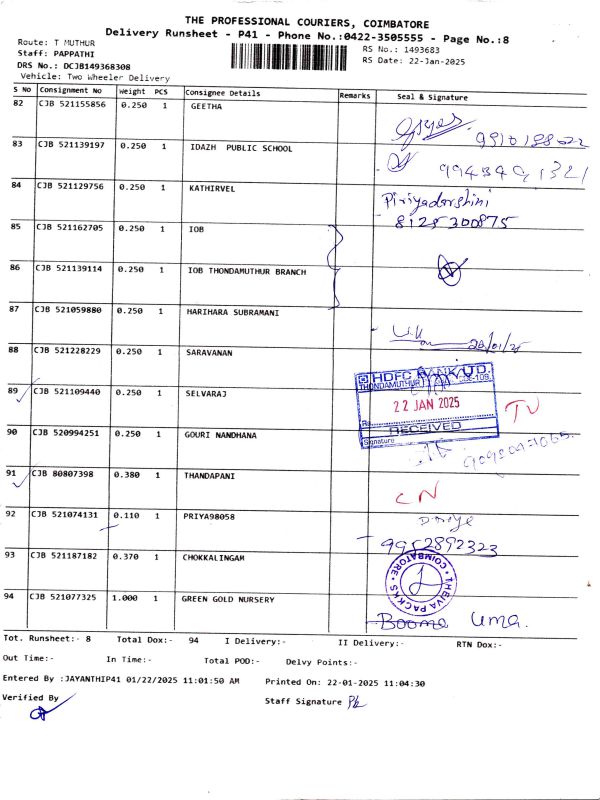 THE PROFESSIONAL COURIERS, COIMBATORE
Delivery Runsheet - P41 - Phone No.:0422-3505555 - Page No.:8
Route: T MUTHUR
RS No.: 1493683
Staff: PAPPATHI
RS Date: 22-Jan-2025
DRS No.: DCJB149368308
Vehicle: Two Wheeler Delivery
S No Consignment No Weight PCS Consignee Details Remarks Seal & Signature
82 CJB 521155856 0.250 1 GEETHA
83 CJB 521139197 0.250 1 IDAZH PUBLIC SCHOOL
84 CJB 521129756 0.250 1 KATHIRVEL Piriyadarshini
8125300875
85 CJB 521162705 0.250 1 IOB
86 CJB 521139114 0.250 1 IOB THONDAMUTHUR BRANCH
87 CJB 521059880 0.250 1 HARIHARA SUBRAMANI
88 CJB 521228229 0.250 1 SARAVANAN
HDFC BANK LTD.
89 CJB 521109440 0.250 1 SELVARAJ
22 JAN 2025
RECEIVED
Signature
90 CJB 520994251 0.250 1 GOURI NANDHANA
91 CJB 80807398 0.380 1 THANDAPANI
CN
92 CJB 521074131 0.110 1 PRIYA98058
9952892323
93 CJB 521187182 0.370 1 CHOKKALINGAM
THEIVA PACKKS COIMBATORE
94 CJB 521077325 1.000 1 GREEN GOLD NURSERY
Booma Uma.
Tot. Runsheet:- 8 Total Dox:- 94 I Delivery:- II Delivery:- RTN Dox:-
Out Time:- In Time:- Total POD:- Delvy Points:-
Entered By :JAYANTHIP41 01/22/2025 11:01:50 AM Printed On: 22-01-2025 11:04:30
Verified By
Staff Signature